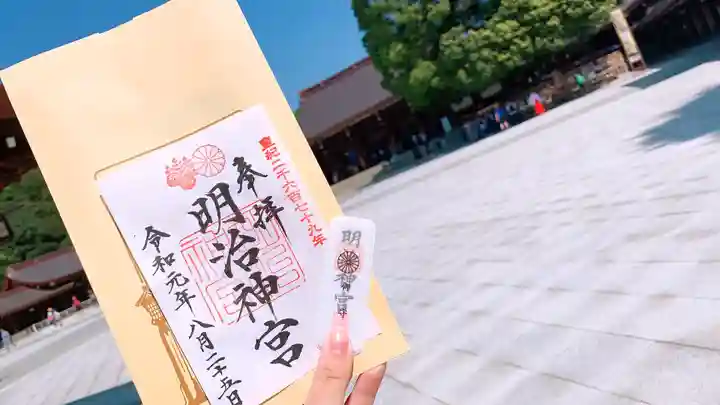 皇紀二千六百七十九年
奉拝
明治神宮
令和元年八月二十五日
明治神宮